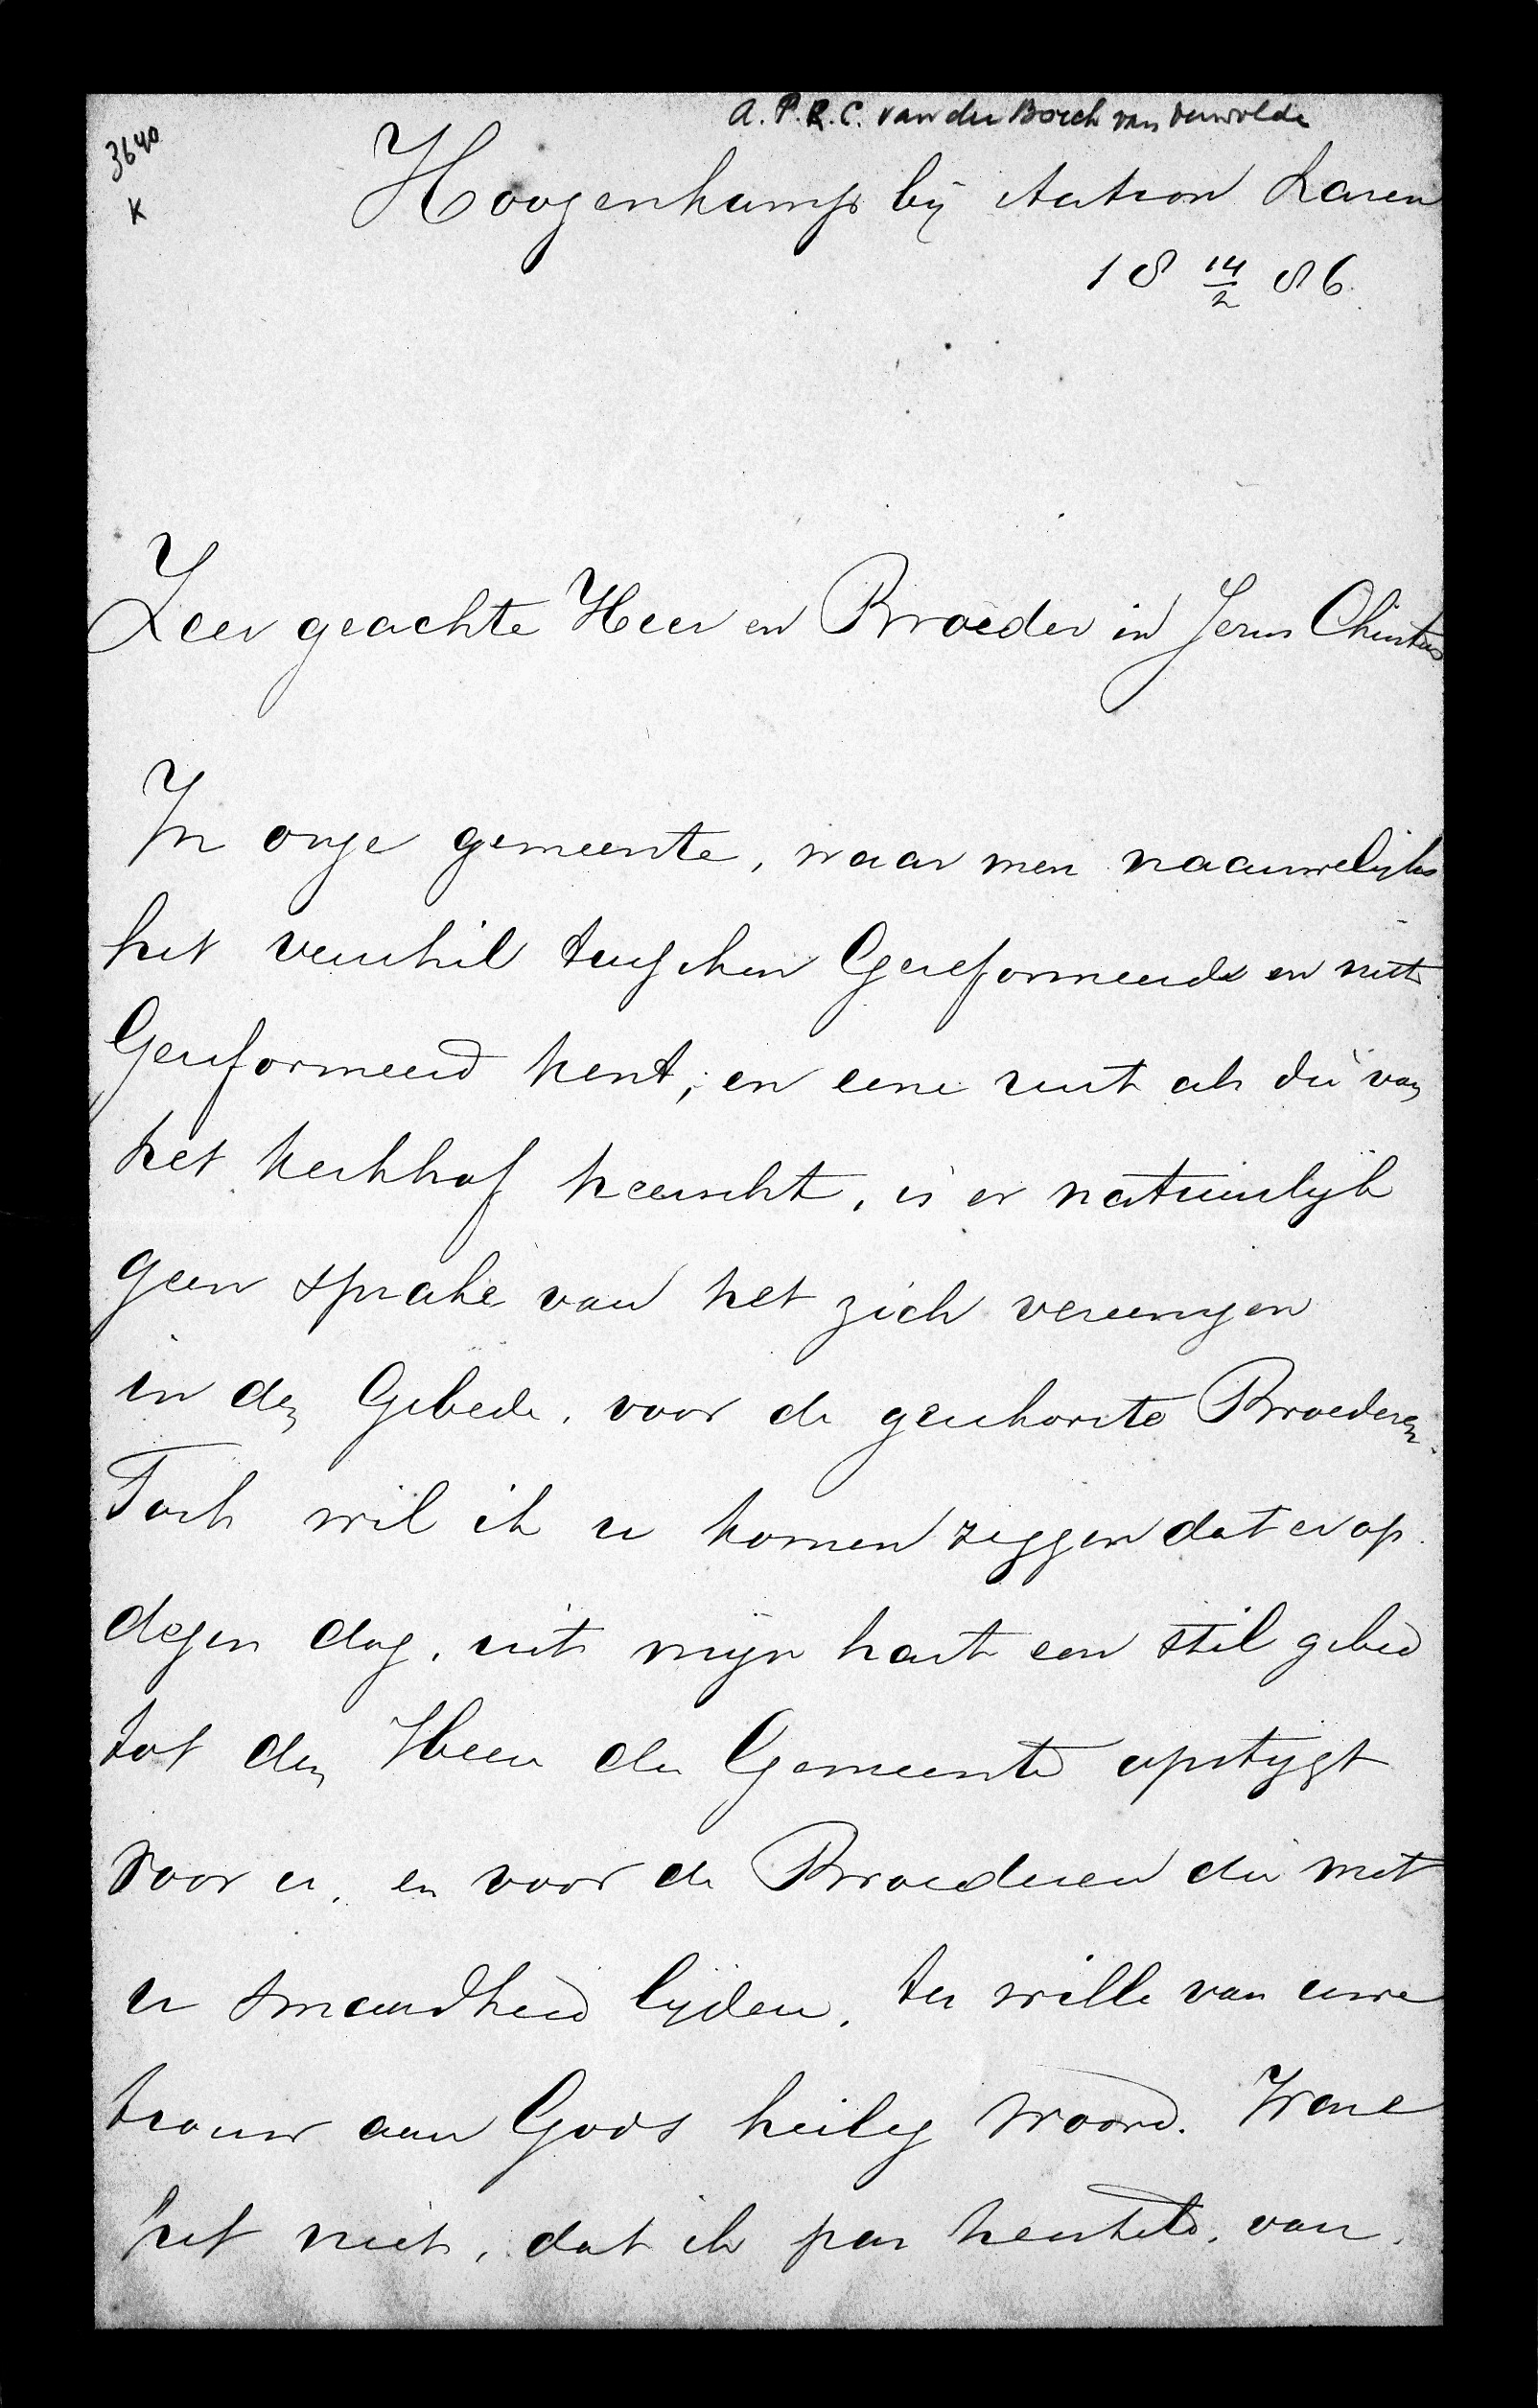 A.P.R.C. van der Borch van Verwolde
3640
K
Hoogenkamp bij station Laren
18 14/2 86.
Zeer geachte Heer en Broeder in Jezus Christus
In onze gemeente, waar men naauwelijks
het verschil tusschen Gereformeerd en niet
Gereformeerd kent, en eene rust als die van
het kerkhof heerscht, is er natuurlijk
geen sprake van het zich vereenigen
in den Gebede, voor de geschorste Broederen.
Toch wil ik u komen zeggen dat er op
dezen dag, uit mijn hart een stil gebed
tot den Heer der Gemeente opstijgt
voor u, en voor de Broederen die met
u smaadheid lijden, ter wille van uwe
trouw aan Gods heilig woord. Ware
het niet, dat ik pas hersteld, van